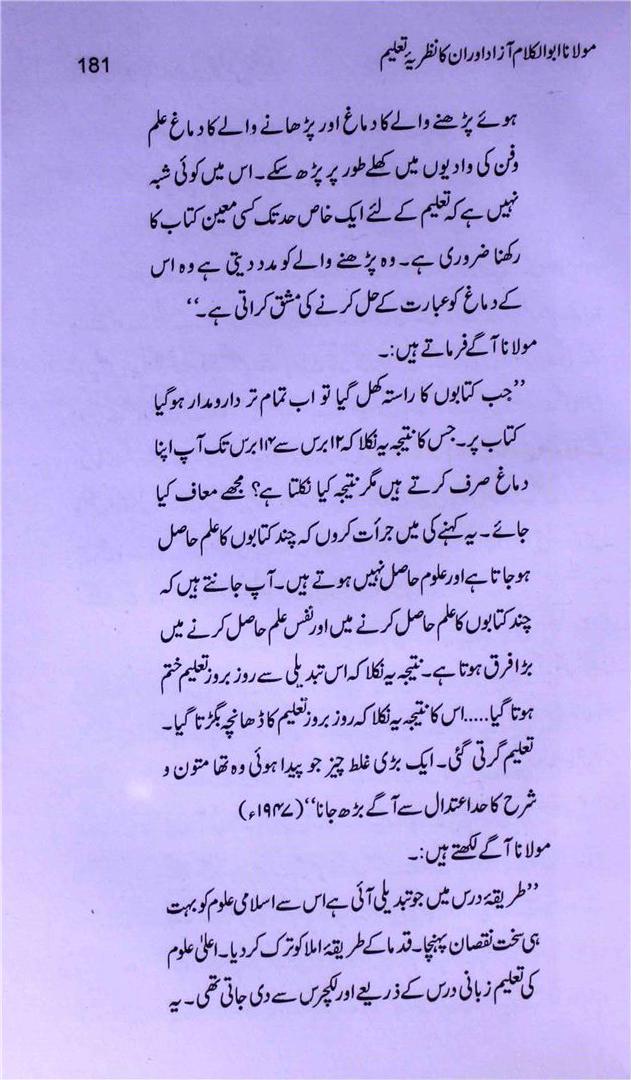 مولانا ابوالکلام آزاد اور ان کا نظریۂ تعلیم
181
ہوئے پڑھنے والے کا دماغ اور پڑھانے والے کا دماغ علم
وفن کی وادیوں میں کھلے طور پر پڑھ سکے۔ اس میں کوئی شبہ
نہیں ہے کہ تعلیم کے لئے ایک خاص حد تک کسی معین کتاب کا
رکھنا ضروری ہے۔ وہ پڑھنے والے کو مدد دیتی ہے وہ اس
کے دماغ کو عبارت کے حل کرنے کی مشق کراتی ہے۔‘‘
مولانا آگے فرماتے ہیں:۔
’’جب کتابوں کا راستہ کھل گیا تو اب تمام تر دارومدار ہوگیا
کتاب پر۔ جس کا نتیجہ یہ نکلا کہ ۱۲ برس سے ۱۴ برس تک آپ اپنا
دماغ صرف کرتے ہیں مگر نتیجہ کیا نکلتا ہے؟ مجھے معاف کیا
جائے۔ یہ کہنے کی میں جرأت کروں کہ چند کتابوں کا علم حاصل
ہوجاتا ہے اور علوم حاصل نہیں ہوتے ہیں۔ آپ جانتے ہیں کہ
چند کتابوں کا علم حاصل کرنے میں اور نفس علم حاصل کرنے میں
بڑا فرق ہوتا ہے۔ نتیجہ یہ نکلا کہ اس تبدیلی سے روز بروز تعلیم ختم
ہوتا گیا.....اس کا نتیجہ یہ نکلا کہ روز بروز تعلیم کا ڈھانچہ بگڑتا گیا۔
تعلیم گرتی گئی۔ ایک بڑی غلط چیز جو پیدا ہوئی وہ تھا متون و
شرح کا حد اعتدال سے آگے بڑھ جانا‘‘ (۱۹۴۷ء)
مولانا آگے لکھتے ہیں:۔
’’طریقۂ درس میں جو تبدیلی آئی ہے اس سے اسلامی علوم کو بہت
ہی سخت نقصان پہنچا۔ قدما کے طریقۂ املا کو ترک کردیا۔ اعلیٰ علوم
کی تعلیم زبانی درس کے ذریعے اور لکچرس سے دی جاتی تھی۔ یہ